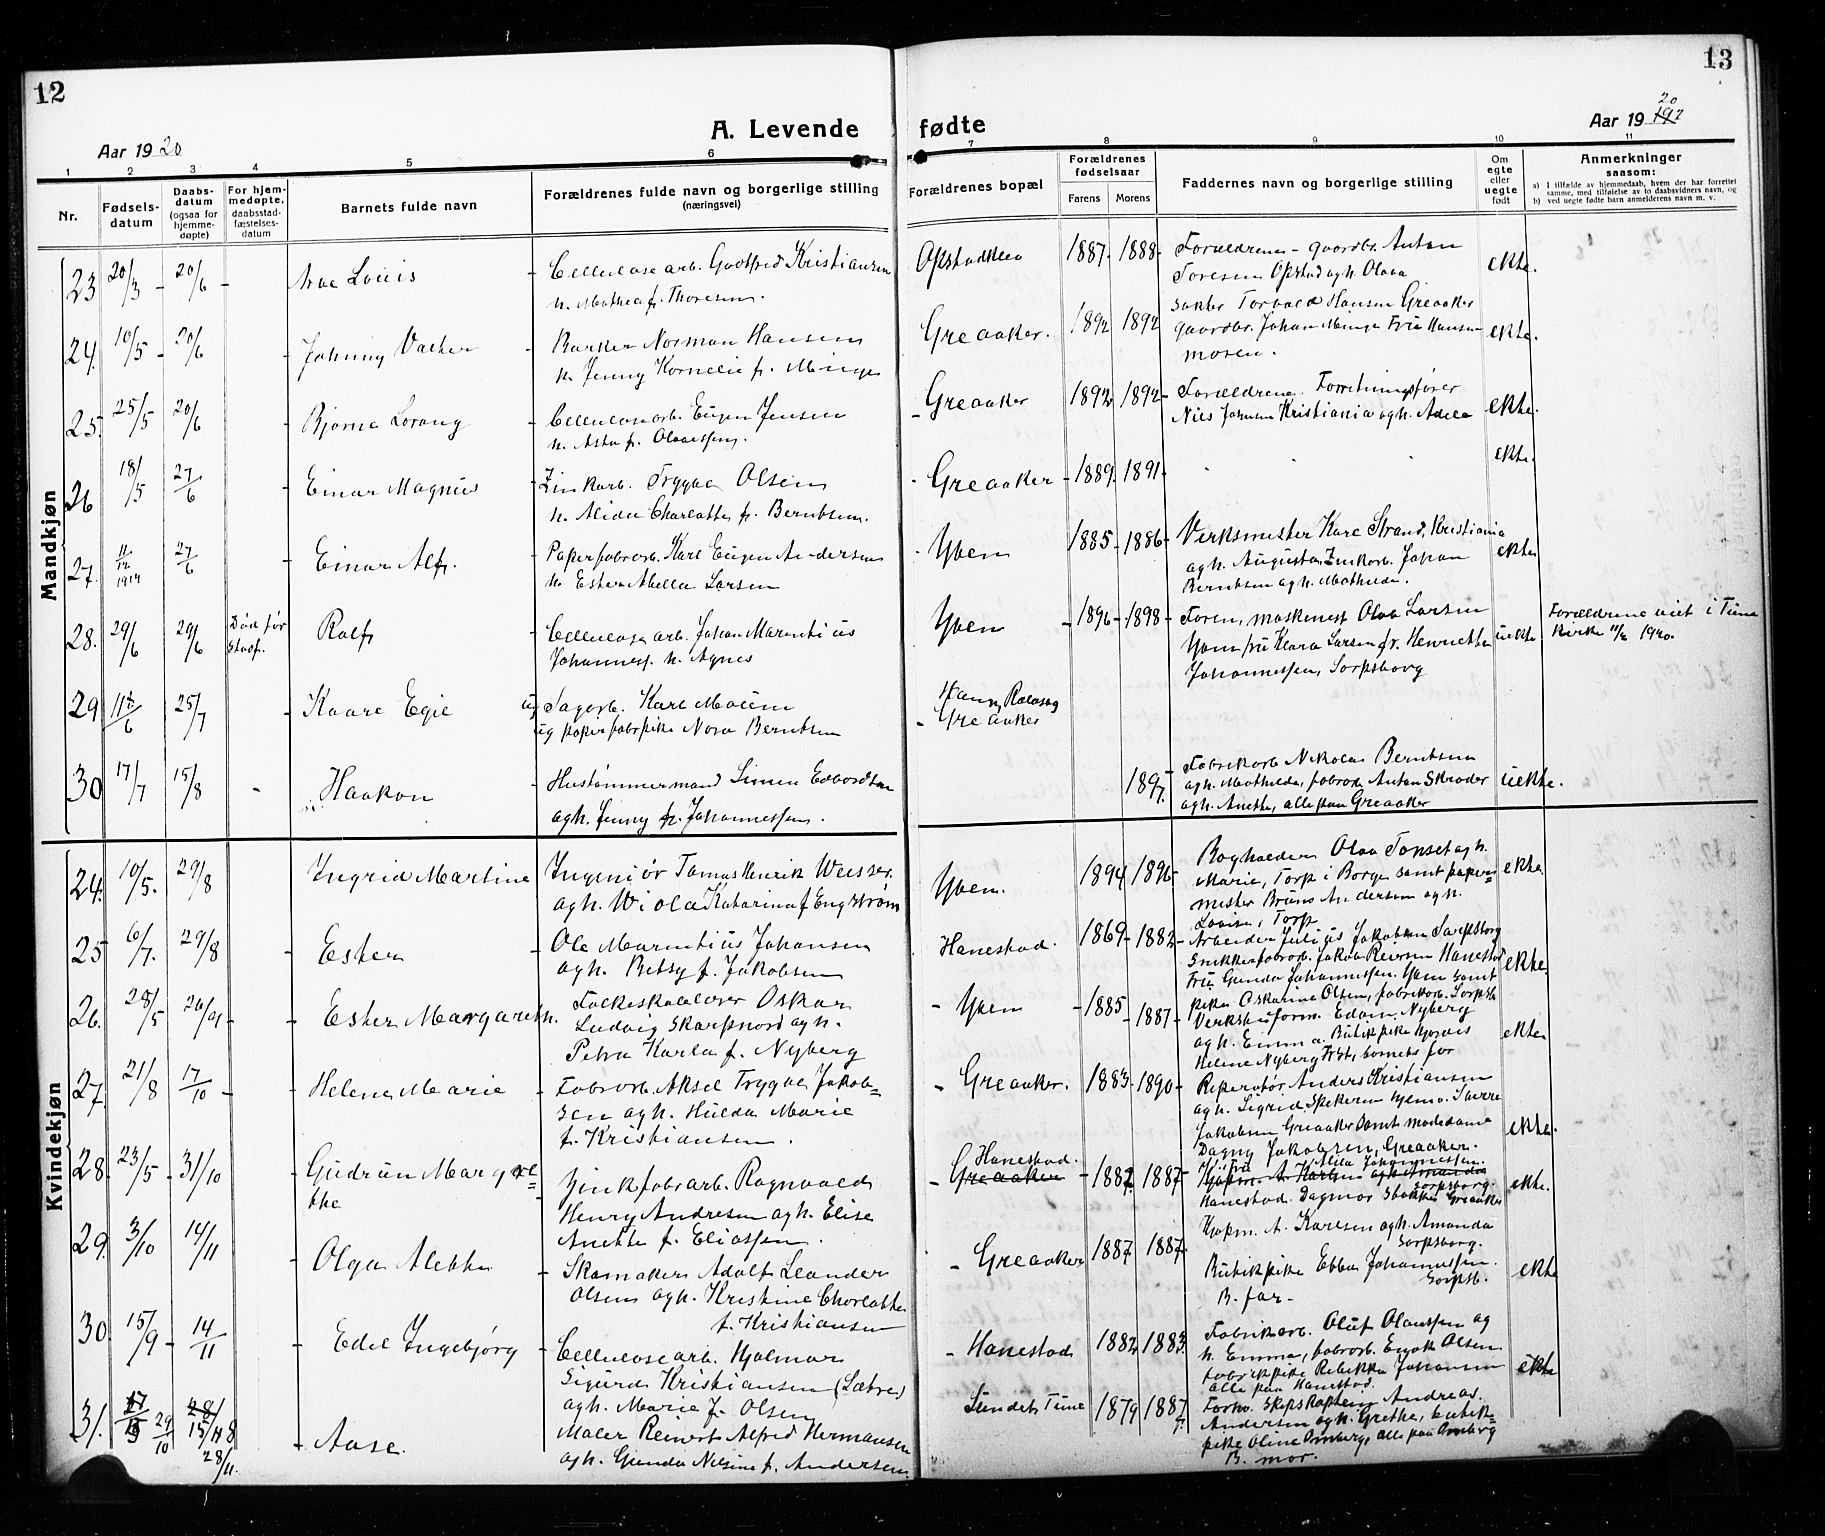 12
13
A. Levende fødte
Aar 1920
Aar 19 20
1 2 3 4 5 6 7 8 9 10 11
Nr.
Fødsels-
datum
Daabs-
datum
(ogsaa for
hjemme-
døpte)
For hjem-
medøpte,
daabsstad-
fæstelses-
datum
Barnets fulde navn
Forældrenes fulde navn og borgerlige stilling
(næringsvei)
Forældrenes bopæl
Forældrenes
fødselsaar
Farens
Morens
Faddernes navn og borgerlige stilling
Om
egte
eller
uegte
født
Anmerkninger
saasom:
a) I tilfælde av hjemmedaab, hvem der har forrettet
samme, med tilføielse av to daabsvidners navn, og
b) ved uegte fødte barn anmelderens navn m. v.
Mandkjøn
23 20/3 - 20/6 - Louis - Cellulosearb. Godtfred Kristiansen
h. Mathea f. Thoresen.
1887. 1888. Forældrene - gaardbr. Anton
Toresen Opstad og h. Olava
ekte.
24. 10/5 - 20/6 - Johnny - Barker Norman Hansen
h. Jenny Kornelie f. Minge
Greaaker. 1892 1892 Torvald Hansen Greaaker
gaardbr. Johan Minge Fru Hansen
mosen.
ekte.
25. 25/5 20/6 - Bjarne Lorang - Cellulosearb. Eugen Jensen
h. Asta f. Olavessen.
- Greaaker 1892 1892 - Forældrene. Forretningsfører
Nils Johnsen Kristiania og h. Adele
ekte.
26 18/5 27/6 - Einar Magnus - Zinkarb. Trygve Olsen
h. Alida Charlotte f. Berntsen.
- Greaaker - 1889. 1891 -
ekte.
27. 11/12 1919 27/6 - Einar Alf. - Papirfabrarb. Karl Eugen Andersen
h. Ester Abella Larsen
- Yven 1885 - 1886 - Verksmester Kare Strand, Kristiania
og h. Augusta, Zinkarb. Johan
Berntsen og h. Mathilde.
ekte
28. 29/6 29/6 Død før
Stadf. Rolf - Cellulosearb. Johan Marentius
Johanness. h. Agnes
Yven - 1896 - 1898 - Faren, maskinest Olav Larsen
Yven, fru Klara Larsen, fr. Henriette
Johannessen, Sarpsborg
uekte
Forældrene viet i Tune
Kirke 1920
29 25/7 - Kaare Egil ug Sagarb. Karl Moum
ug papirfabrpike Nora Berntsen
- Greaaker
30 17/7 15/8 - Haakon - Hustømmermand Simen Edvardsen
og h. Jenny f. Johannessen.
1897. Fabrikarb Nikolai Berntsen
og h. Mathilde, fabrarb. Anton Skrøder
og h. Anette, alle paa Greaaker
uekte.
Kvindekjøn
24. 10/5. 29/8 Ingrid Martine Ingeniør Tomas Henrik Weisser.
og h. Wiola Katarina f Engstrøm
Yven. 1894 1896 - Bogholder Olav Tonset og h.
Marie, Torp i Borge samt papir-
mester Bruno Andersen og h.
Lovise, Torp
ekte
25 6/7. 29/8 - Ester - Ole Marentius Johansen
og h. Betsy f. Jakobsen
Hanestad. 1869 - 1882 - Arbeider Julius Jakobsen Sarpsborg
Snikkerfabrarb. Jakob Reiersen Hanestad
Fru Gunda Johannessen. Yven samt
pike Oskarine Olsen, fabrikarb. Sarpsb
ekte
26. 28/5 20/9 - Ester Margareth. Folkeskolelærer Oskar
Ludvig Skarpnord og h.
Petra Karla f. Nyberg
- Yven - 1885 - 1887 - Verksbuform. Edvin Nyberg
og h. Emma. Butikpike Hjørdis
Helene Nyberg Frst, barnets far
ekte
27. 21/8 17/10 - Helene Marie - Fabrarb. Aksel Trygve Jakob-
sen og h. Hulda Marie
f. Kristiansen.
- Greaaker. 1883 - 1890 - Reperatør Anders Kristiansen
og h. Sigrid, Spekeren Hjelmo. Sverre
Jakobsen Greaaker samt modedame
Dagny Jakobsen, Greaaker.
ekte.
28. 23/5 - 31/10 - Gudrun Margre-
the - Zinkfabrarb. Ragnvald
Henry Andresen og h. Elise
Anette f. Eliassen.
Hanestad.
- Greaaker - 1887. 1887 Kjøpm. A. Karlsen og h. Amanda
Hanestad. Dagmar Greaaker
ekte.
29. 3/10 14/11 - Olga Alethe - Skomaker Adolf Leander
Olsen og h. Kristine Charlotte
f. Kristiansen
- Greaaker 1887 1887. Kjøpm. A. Karlsen og h. Amanda
Sarpsborg.
Butikpike Ebba Johannessen.
Sarpsb.
B. far -
ekte
30. 15/9 - 14/11 - Edel Ingebjørg - Cellulosearb. Hjalmar
Sigurd Kristiansen (Sætre)
og h. Marie f. Olsen
- Hanestad 1882 1883. Fabrikarb. Oluf Olaussen og
h. Emma, fabrarb. Enok Olsen
fabrikpike Rebekka Johansen
alle paa Hanestad.
ekte
31. 29/10 28/11. - Aase. Maler Reinert Alfred Hermansen
og h. Gunda Nilsine f. Andersen
Sundet, Tune 1879 1887 Forhv. Skipskaptein Andreas
Andersen og h. Grethe, butik-
pike Oline Omberg, alle paa Omberg
B. mor.